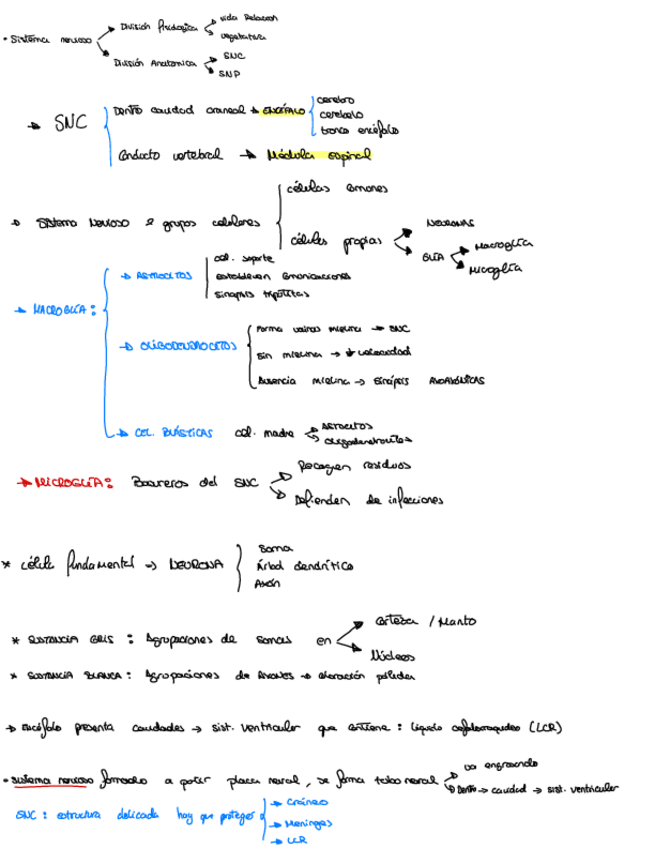 • Sistema nervioso → División Fisiológica → vida Relación
→ vegetativa
→ División Anatómica → SNC
→ SNP
→ SNC { Dentro cavidad craneal → ENCÉFALO { cerebro
cerebelo
tronco encéfalo
Conducto vertebral → Médula espinal
→ Sistema Nervioso 2 grupos celulares { células comunes
células propias → NEURONAS
→ GLÍA → Macroglía
→ Microglía
→ MACROGLÍA: { → ASTROCITOS | cel. soporte
establecen comunicaciones
sinapsis tripartitas
→ OLIGODENDROCITOS { Forma vainas mielina → SNC
Sin mielina → ↓ velocidad
Ausencia mielina → sinapsis AXOAXÓNICAS
→ CEL. BLÁSTICAS cel. madre → ASTROCITOS
→ oligodendrocitos
→ MICROGLÍA: Basureros del SNC → Recogen residuos
→ Defienden de infecciones
* célula fundamental → NEURONA } Soma
Árbol dendrítico
Axón
* SUSTANCIA GRIS : Agrupaciones de somas en → Corteza / Manto
→ Núcleos
* SUSTANCIA BLANCA : Agrupaciones de AXONES → coloración pálida
→ Encéfalo presenta cavidades → sist. ventricular que contiene : líquido cefalorraquídeo (LCR)
• Sistema nervioso formado a partir placa neural, se forma tubo neural → va engrosando
→ Dentro → cavidad → sist. ventricular
SNC : estructura delicada hay que proteger { → Cráneo
→ Meninges
→ LCR